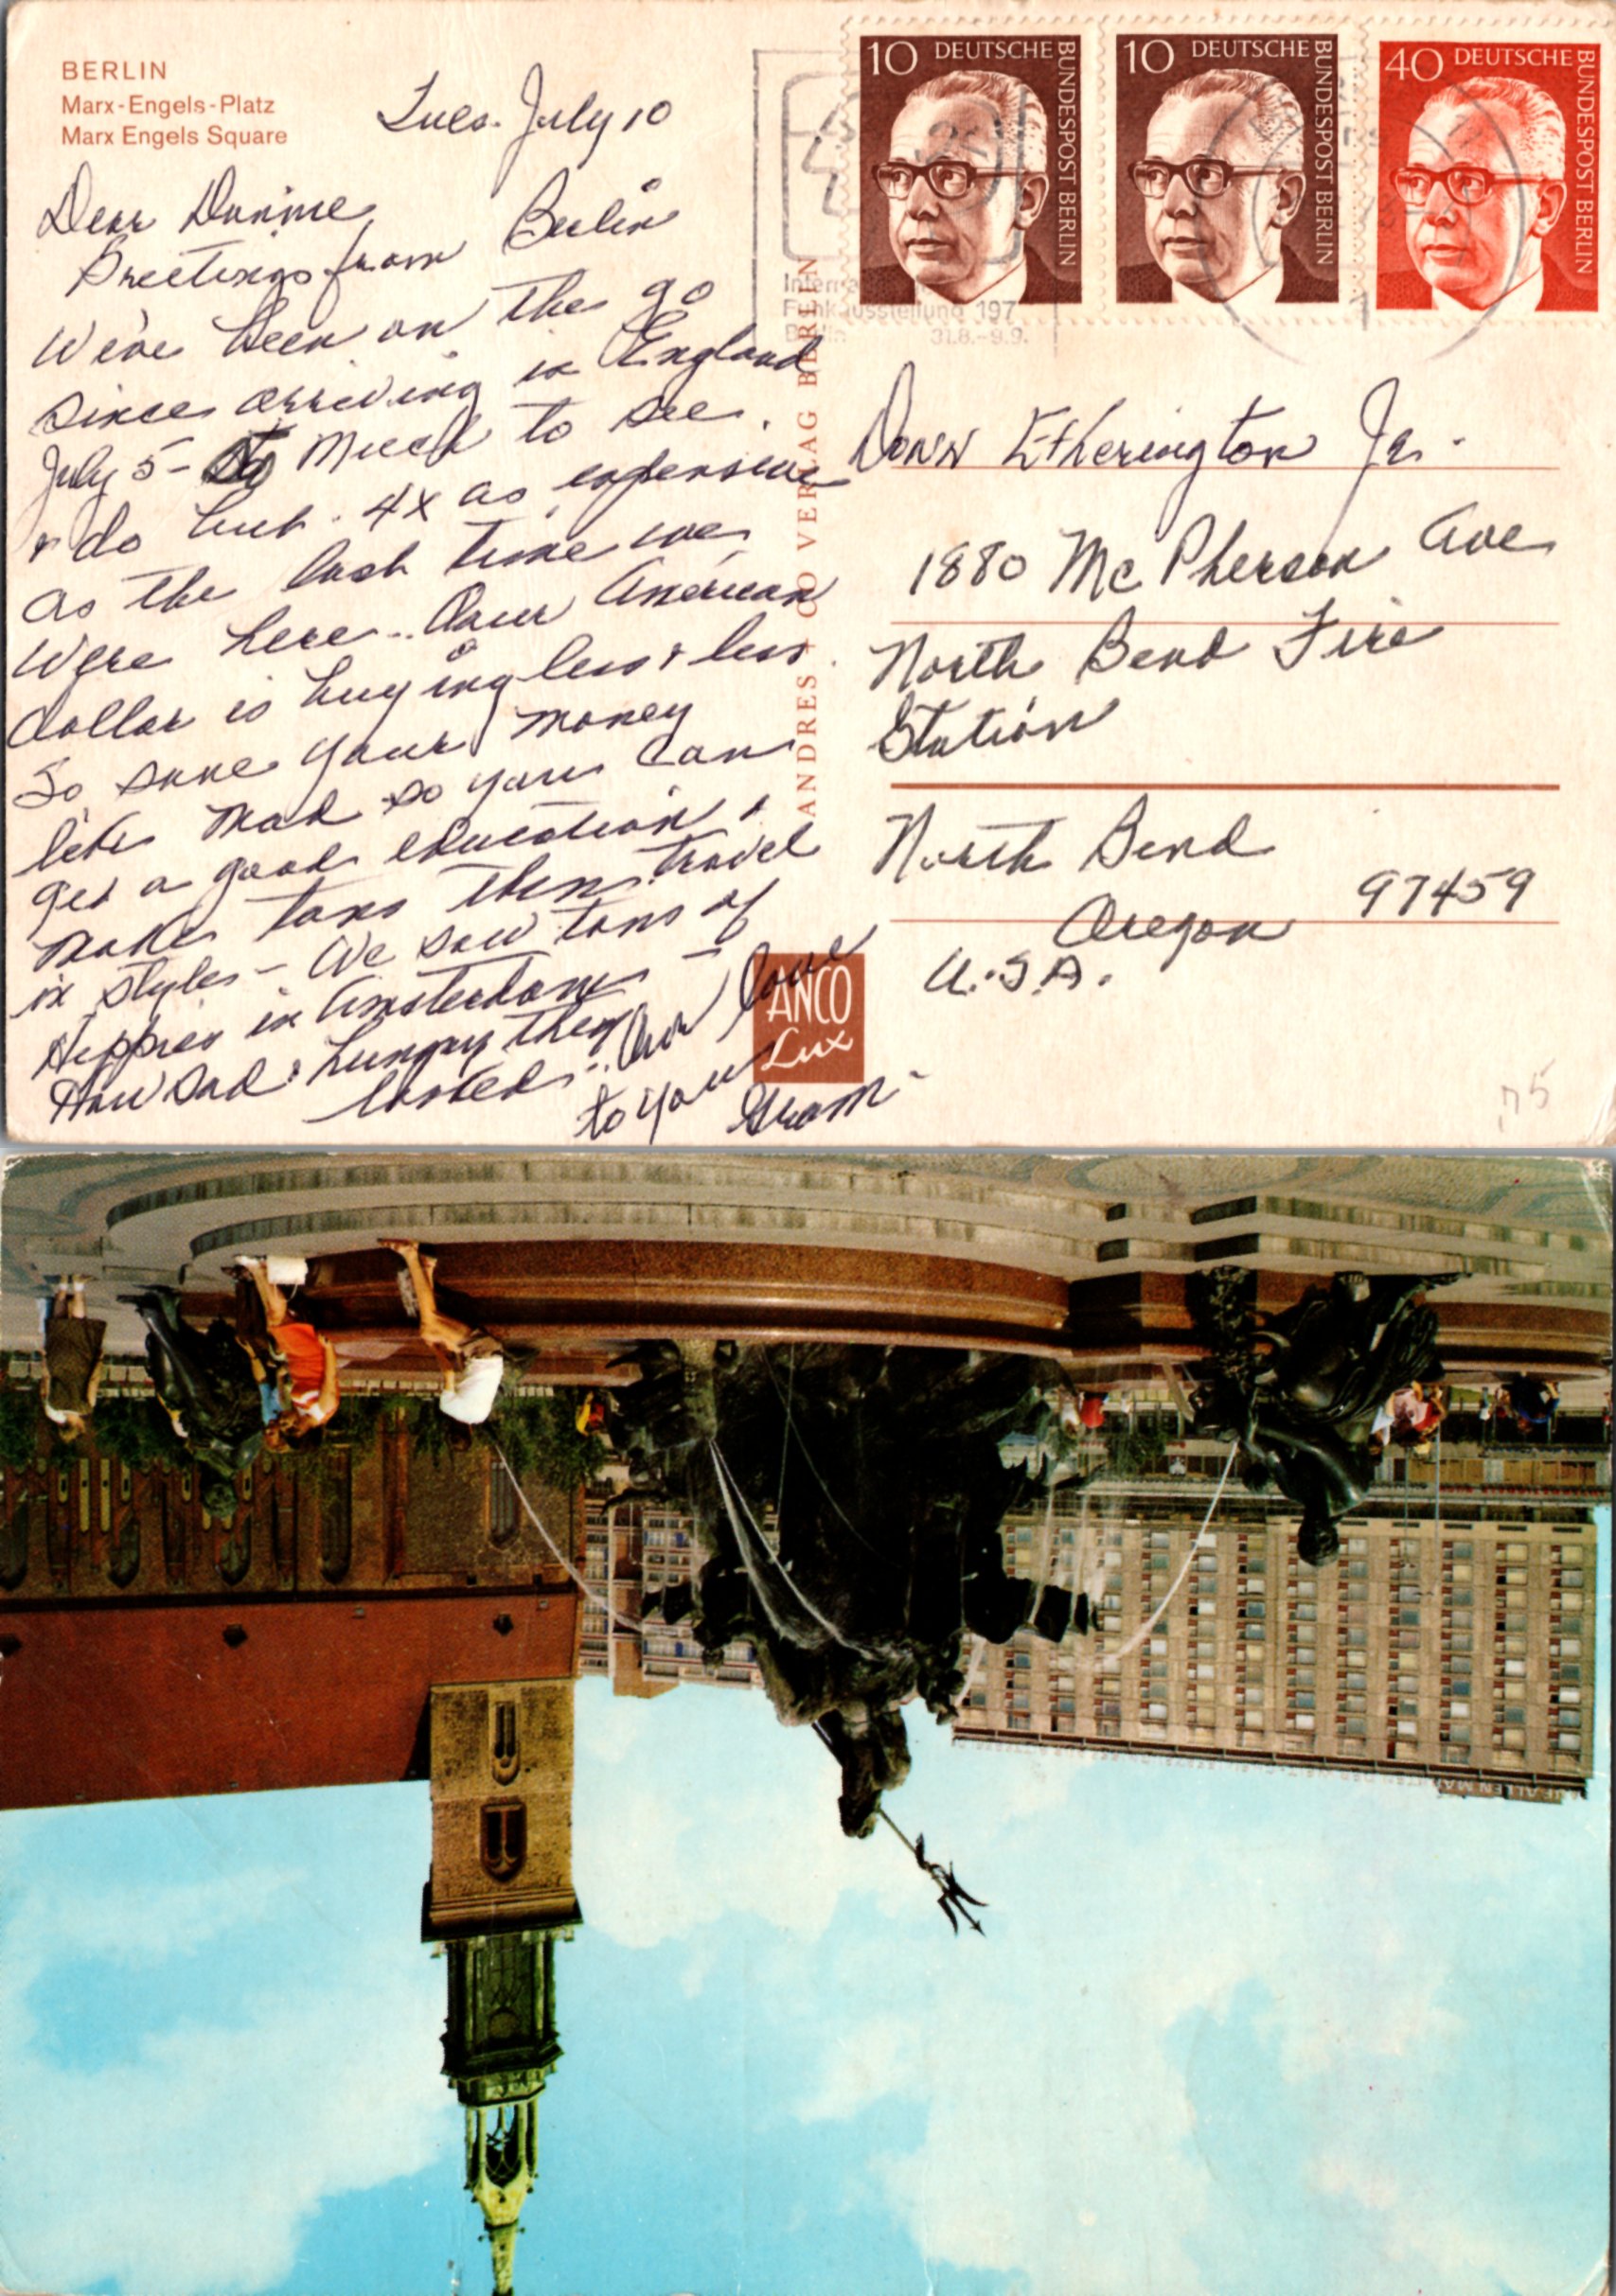 BERLIN
Marx-Engels-Platz
Marx Engels Square
Tues. July 10
Dear Donnie,
Greetings from Berlin
We've been on the go
since arriving in England
July 5 - So Much to see
& do but 4x as expensive
as the last time we
were here.. Our American
dollar is buying less & less.
So save your money
like mad so you can
get a good education &
make tons then travel
in style - We saw tons of
Hippies in Amsterdam -
How sad & hungry they
looked.. Our love
to you
Gram -
ANDRES + CO VERLAG BERLIN
ANCO
Lux
10 DEUTSCHE BUNDESPOST BERLIN
10 DEUTSCHE BUNDESPOST BERLIN
40 DEUTSCHE BUNDESPOST BERLIN
Funkausstellung 197
Berlin 31.8.-9.9.
Donn Etherington Jr.
1880 McPherson Ave
North Bend Fire
Station
North Bend
Oregon 97459
U.S.A.
.75